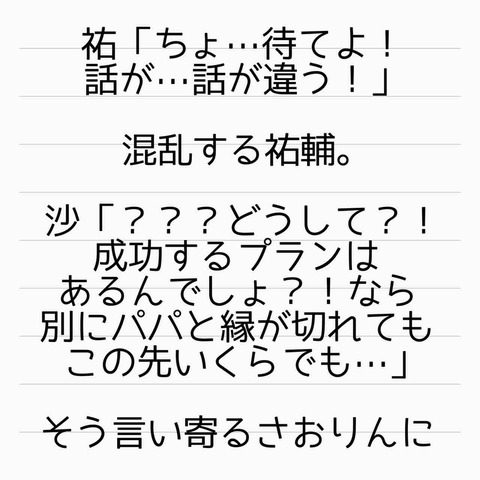 祐「ちょ…待てよ！
話が…話が違う！」
混乱する祐輔。
沙「？？？どうして？！
成功するプランは
あるんでしょ？！なら
別にパパと縁が切れても
この先いくらでも…」
そう言い寄るさおりんに